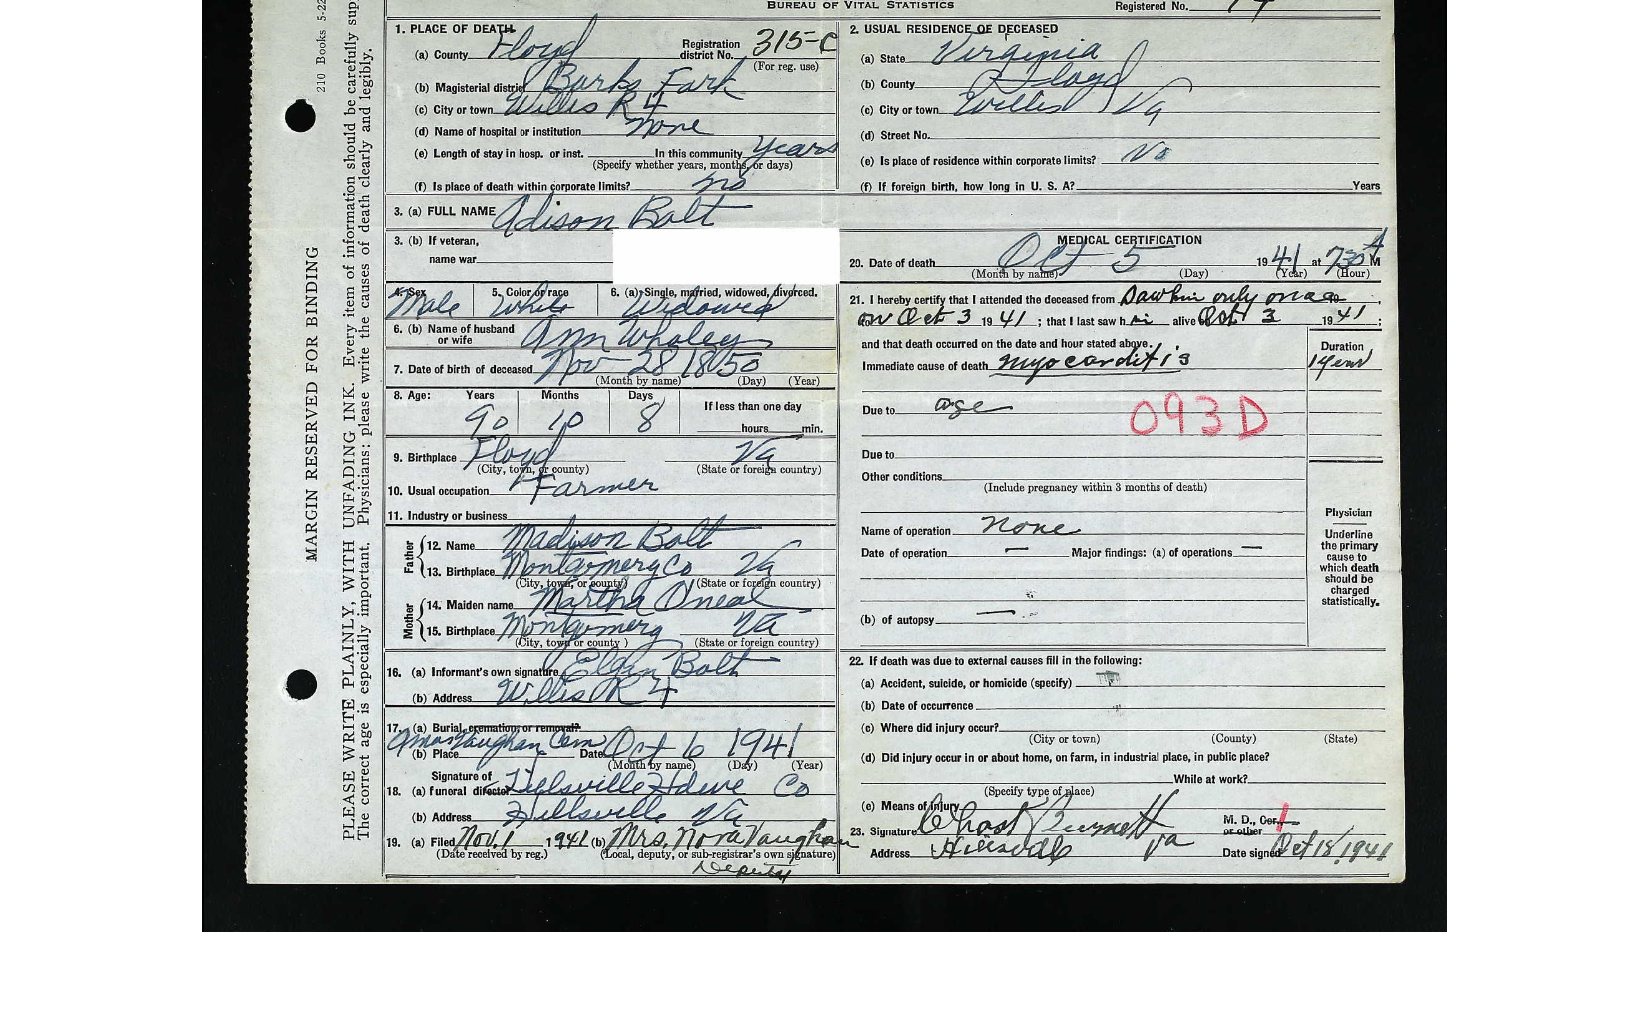 BUREAU OF VITAL STATISTICS
Registered No.
210 Books 5-22
MARGIN RESERVED FOR BINDING
PLEASE WRITE PLAINLY, WITH UNFADING INK. Every item of information should be carefully sup
The correct age is especially important. Physicians: please write the causes of death clearly and legibly.
1. PLACE OF DEATH
(a) County Floyd Registration district No. 315-C
(For reg. use)
(b) Magisterial district Burks Fark
(c) City or town Willis R 4
(d) Name of hospital or institution none
(e) Length of stay in hosp. or inst. In this community years
(Specify whether years, months, or days)
(f) Is place of death within corporate limits? no
2. USUAL RESIDENCE OF DECEASED
(a) State Virginia
(b) County Floyd
(c) City or town Willis Va
(d) Street No.
(e) Is place of residence within corporate limits? No
(f) If foreign birth, how long in U. S. A? Years
3. (a) FULL NAME Adison Bolt
3. (b) If veteran,
name war
4. Sex 5. Color or race 6. (a) Single, married, widowed, divorced.
Male White Widowed
6. (b) Name of husband
or wife Ann Whaley
7. Date of birth of deceased Nov 28 1850
(Month by name) (Day) (Year)
8. Age: Years Months Days If less than one day
90 10 8 hours min.
9. Birthplace Floyd Va
(City, town, or county) (State or foreign country)
10. Usual occupation Farmer
11. Industry or business
Father
12. Name Madison Bolt
13. Birthplace Montgomery Co Va
(City, town, or county) (State or foreign country)
Mother
14. Maiden name Martha Oneal
15. Birthplace Montgomery Va
(City, town or county) (State or foreign country)
16. (a) Informant's own signature Elgin Bolt
(b) Address Willis R 4
17. (a) Burial, cremation, or removal?
(b) Place Amos Vaughan Cem Date Oct 6 1941
(Month by name) (Day) (Year)
Signature of
18. (a) funeral director Hillsville Hdwe Co
(b) Address Hillsville Va
19. (a) Filed Nov. 1 1941 (b) Mrs. Nora Vaughan
(Date received by reg.) (Local, deputy, or sub-registrar's own signature)
Deputy
MEDICAL CERTIFICATION
20. Date of death Oct 5 1941 at 7:30 A M
(Month by name) (Day) (Year) (Hour)
21. I hereby certify that I attended the deceased from Saw him only once
on Oct 3 1941; that I last saw h alive Oct 3 1941;
and that death occurred on the date and hour stated above. Duration
Immediate cause of death myocarditis 1 year
Due to age
093D
Due to
Other conditions
(Include pregnancy within 3 months of death)
Name of operation none
Date of operation — Major findings: (a) of operations —
(b) of autopsy —
Physician
Underline
the primary
cause to
which death
should be
charged
statistically.
22. If death was due to external causes fill in the following:
(a) Accident, suicide, or homicide (specify)
(b) Date of occurrence
(c) Where did injury occur?
(City or town) (County) (State)
(d) Did injury occur in or about home, on farm, in industrial place, in public place?
While at work?
(Specify type of place)
(e) Means of injury
23. Signature M. D., Cor.
or other
Address Hillsville Va Date signed Oct 18, 1941